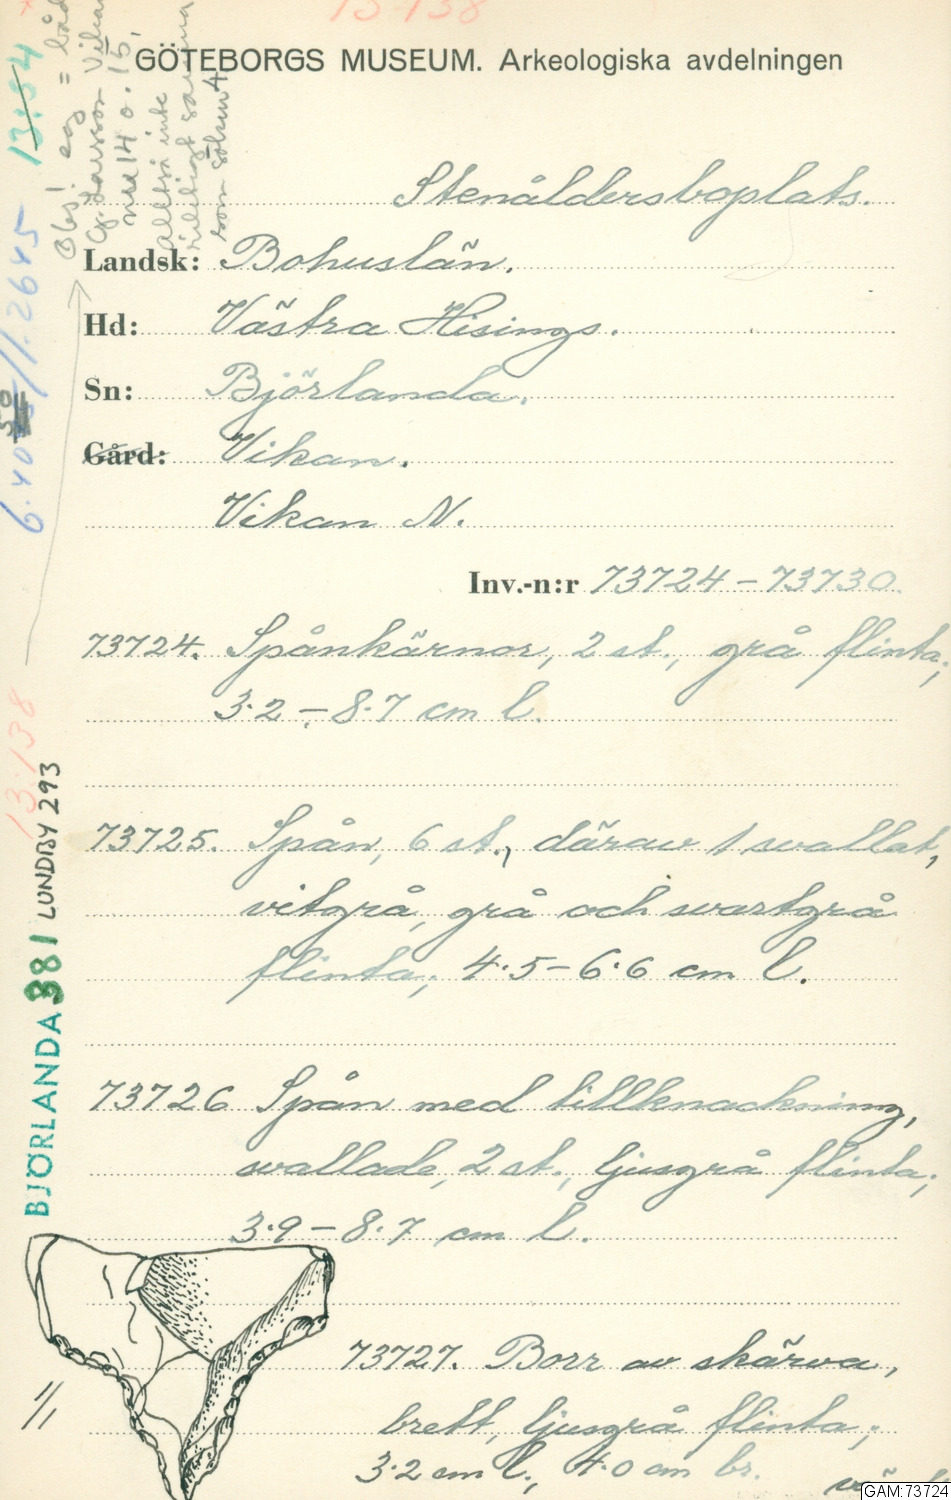 13-138
GÖTEBORGS MUSEUM. Arkeologiska avdelningen
Stenåldersboplats.
Landsk: Bohuslän.
Hd: Västra Hisings.
Sn: Björlanda.
Gård: Vikan.
Vikan N.
Inv.-n:r 73724-73730.
73724. Spånkärnor, 2 st., grå flinta;
3.2-8.7 cm l.
73725. Spån, 6 st., därav 1 svallat,
vitgrå, grå och svartgrå
flinta; 4.5-6.6 cm l.
73726 Spån med tillknackning,
svallade, 2 st., ljusgrå flinta;
3.9-8.7 cm l.
73727. Borr av skärva,
brett, ljusgrå flinta;
3.2 cm l., 4.0 cm br.
1/1
BJÖRLANDA 381 LUNDBY 293
13:138
6.40 50 /1.2645
13:54
Obs! eg =
G. Larsson
nr 14 o. 15,
alltså inte
som
GAM:73724